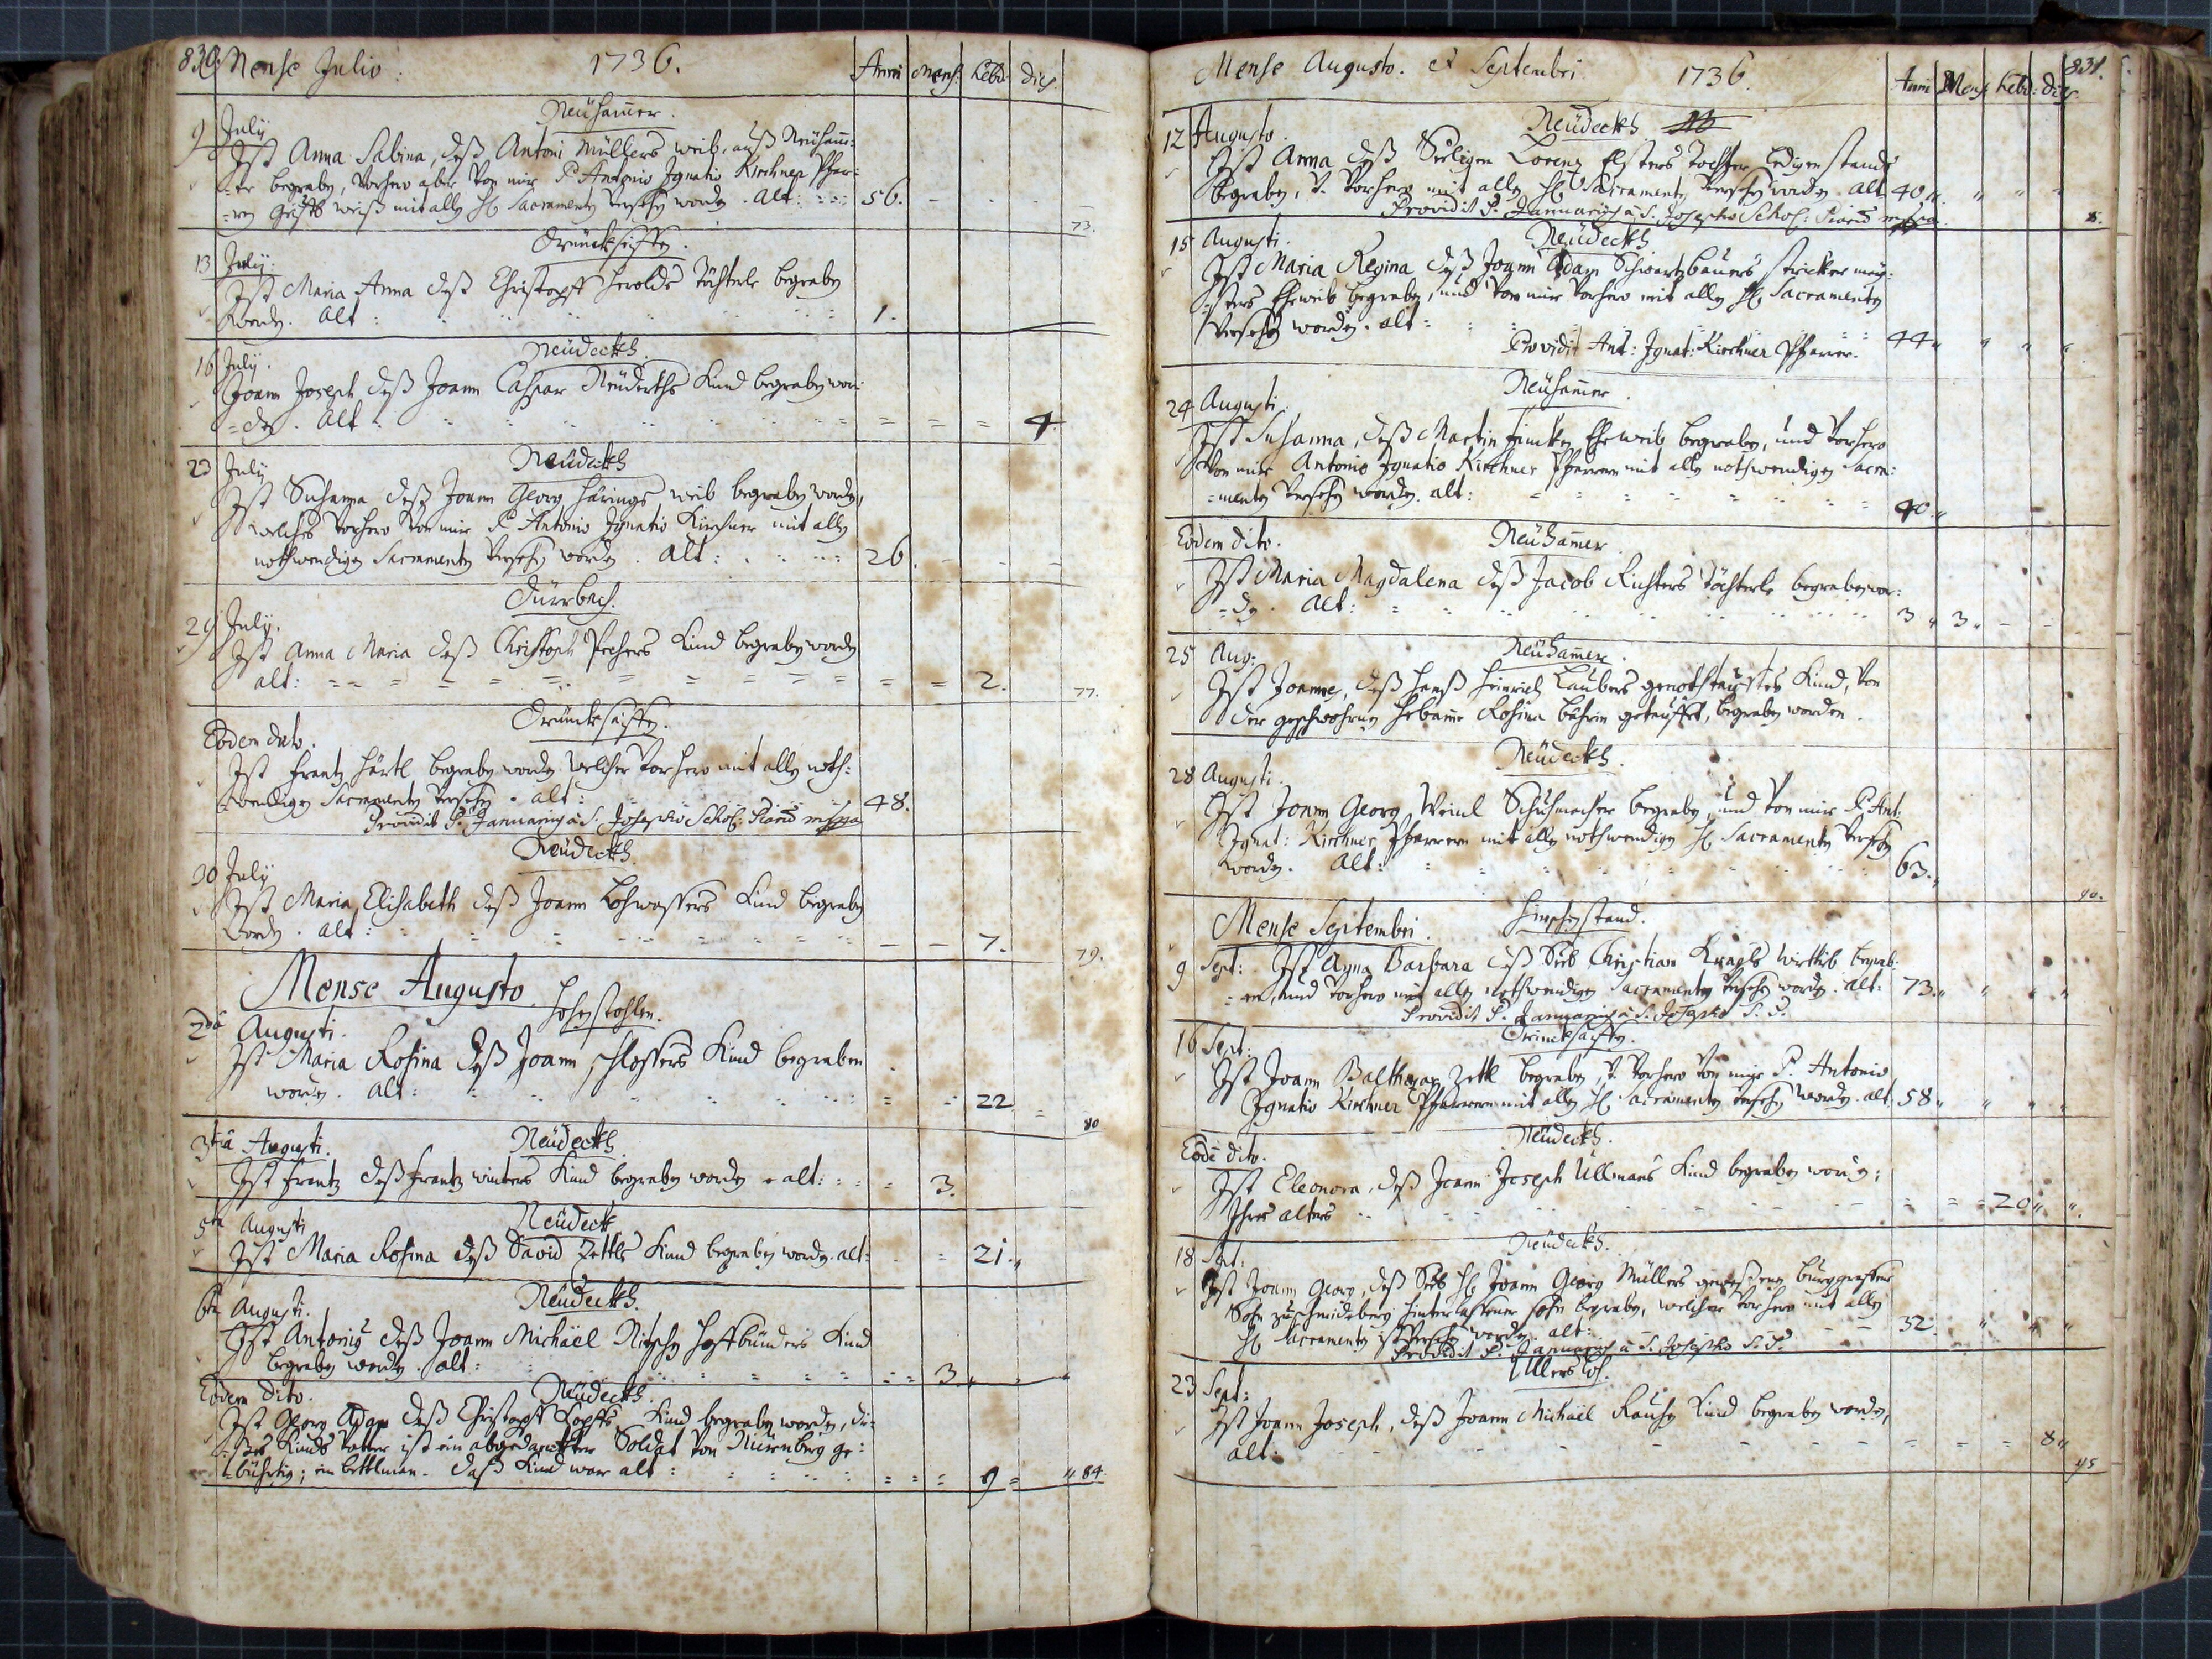 830 Mense Julio: 1736. Anni Mens: Hebd: dies.
Neuhamer.
9 July
Ist Anna Sabina, deß Antoni Müllers weib, auß Neuham=
=er begraben, vorhero aber von mir P. Antonio Ignatio Kirchner Pfar=
mit allen hl Sacramenten versehen worden. Alt: 56.
73.
13 July:
Ist Maria Anna deß Christoph Herolds Töchterle begraben
worden. Alt: 1.
Neudeckh.
16 July.
Joann Joseph deß Joann Caspar Kind begraben wor=
=den. Alt: 4.
23 July Neudeckh
Ist Susanna deß Joann Georg Härings weib begraben worden,
welches vorhero von mir P. Antonio Ignatio Kirchner mit allen
nothwendigen Sacramenten versehen worden. Alt: 26.
Dürrbach.
29 July.
Ist Anna Maria deß Christoph Kind begraben worden
alt: 2.
77.
Eodem dato.
Ist Frantz Härtl begraben worden welcher vorhero mit allen noth=
wendigen Sacramenten versehen. alt: 48.
Providit P. Januarius à S. Josepho Schol: Piarum
Neudeckh.
30 July
Ist Maria Elisabeth deß Joann Lohwassers Kind begraben
worden. Alt: 7.
79.
Mense Augusto.
2da Augusti.
Ist Maria Rosina deß Joann Schlossers Kind begraben
worden. Alt: 22
80
3tia Augusti. Neudeckh.
Ist Frantz deß Frantz winters Kind begraben worden. alt: 3.
5ta Augusti Neudeck
Ist Maria Rosina deß David Zettls Kind begraben worden. alt: 21.
6ta Augusti. Neudeckh.
Ist Antonius deß Joann Michäel Kind
begraben worden. alt: 3.
Eodem dito. Neudeckh.
Ist Georg Adam deß Christoph Kind begraben worden, di=
=ses Kinds Vatter ist ein abgedanckter Soldat von Nürenberg ge=
=bührtig; ein bettlman. Daß Kind war alt: 9
84.
Mense Augusto. et Septembri 1736. Anni Mens Hebd: dies. 831.
12 Augusto. Neudeckh
Ist Anna deß Seeligen Lorenz Elsters Tochter ledigen stands
begraben, vorhero mit allen hl Sacramenten versehen worden. Alt 40
Providit P. Januarius à S. Josepho Schol: Piarum
15 Augusti. Neudeckh
Ist Maria Regina deß Joann Adam Schwartzbauers stricker mey=
=sters Eheweib begraben, und von mir vorhero mit allen hl Sacramenten
versehen worden. alt: 44
Providit Ant: Ignat: Kirchner Pfarrer.
Neuhamer.
24 Augusti.
Ist Susanna, deß Martin Eheweib begraben, und vorhero
von mir Antonio Ignatio Kirchner Pfarrern mit allen nothwendigen Sacra=
=menten versehen worden. alt: 40.
Eodem dito. Neuhamer
Ist Maria Magdalena deß Jacob Richters Töchterle begraben wor=
=den. Alt: 3 3
25 Aug: Neuhamer.
Ist Joannes, deß Hanß Heinrich Laubers genothtaufftes Kind, von
der geschwohrnen Hebame Rosina getaufft, begraben worden.
Neudeckh.
28 Augusti.
Ist Joann Georg Schuhmacher begraben, und von mir P. Ant:
Ignat: Kirchner Pfarrern mit allen nothwendigen hl Sacramenten versehen
worden. Alt: 63.
90.
Mense Septembri.
9 Sept: Ist Anna Barbara deß Seel Christian wittib begrab=
=en, und vorhero mit allen nothwendigen Sacramenten versehen worden. alt: 73.
Providit P. Januarius à S. Josepho S. P.
16 Sept:
Ist Joann Balthasar Zettl begraben, vorhero von mir P. Antonio
Ignatio Kirchner Pfarrern mit allen hl Sacramenten versehen worden. alt 58
Neudeckh.
Eodem dito.
Ist Eleonora, deß Joann Joseph Ullmans Kind begraben worden;
Ihres alters 20
Neudeckh.
18 Sept:
Ist Joann Georg, deß Seel H. Joann Georg Müllers gewesenen burggraffens
hinterlassener Sohn begraben, welcher vorhero mit allen
hl Sacramenten ist versehen worden. alt: 32.
Providit P. Januarius à S. Josepho S. P.
Ullersloh.
23 Sept:
Ist Joann Joseph, deß Joann Michäel Kind begraben worden,
alt: 8
95